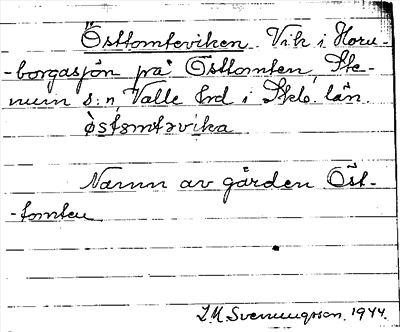 Östtomteviken. Vik i Horn-
-borgasjön på Östtomten, Ste-
num s:n, Valle hrd i Skb. län.
östɘmtəvika
Namn av gården Öst-
-tomten
I M Svenungsson. 1944.